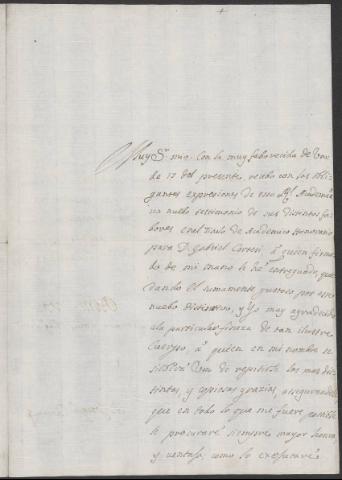 +
Muy S.r mio. Con la muy faborecida de
de 17 del presente, recibo con las obli
gantes expresiones de esa R.l Academia
un nuebo testimonio de sus distintos fa
bores en el Titulo de Academico honorario
para D. Gabriel Cortesi, a quien firma
do de mi mano le he entregado, que
dando el sumamente gustoso por este
nuebo distintivo, y Yo muy agradecido
a la particular fineza de tan ilustre
Cuerpo, a quien en mi nombre se
de repetirle las mas dis
tintas, y copiosas gracias, asegurandole
que en todo lo que me fuere posible
le procuraré siempre mayor honra,
y ventaja, como lo executaré